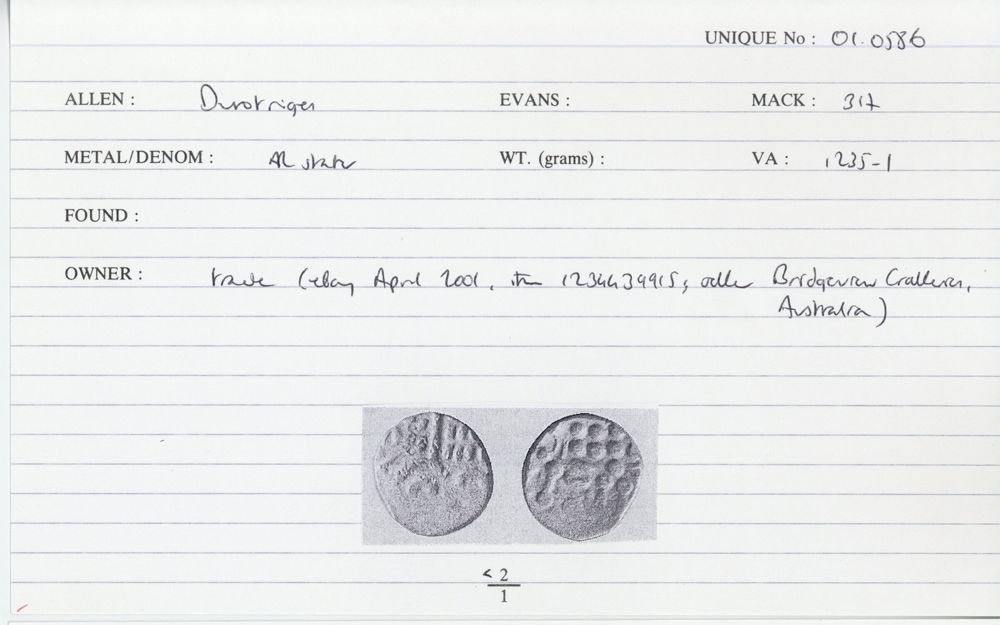 UNIQUE No : 01.0586
ALLEN : Durotriges EVANS : MACK : 317
METAL/DENOM : AR stater WT. (grams) : VA : 1235-1
FOUND :
OWNER : trade (ebay April 2001, item 1234439915; seller Bridgeview Galleries,
Australia)
< 2
1